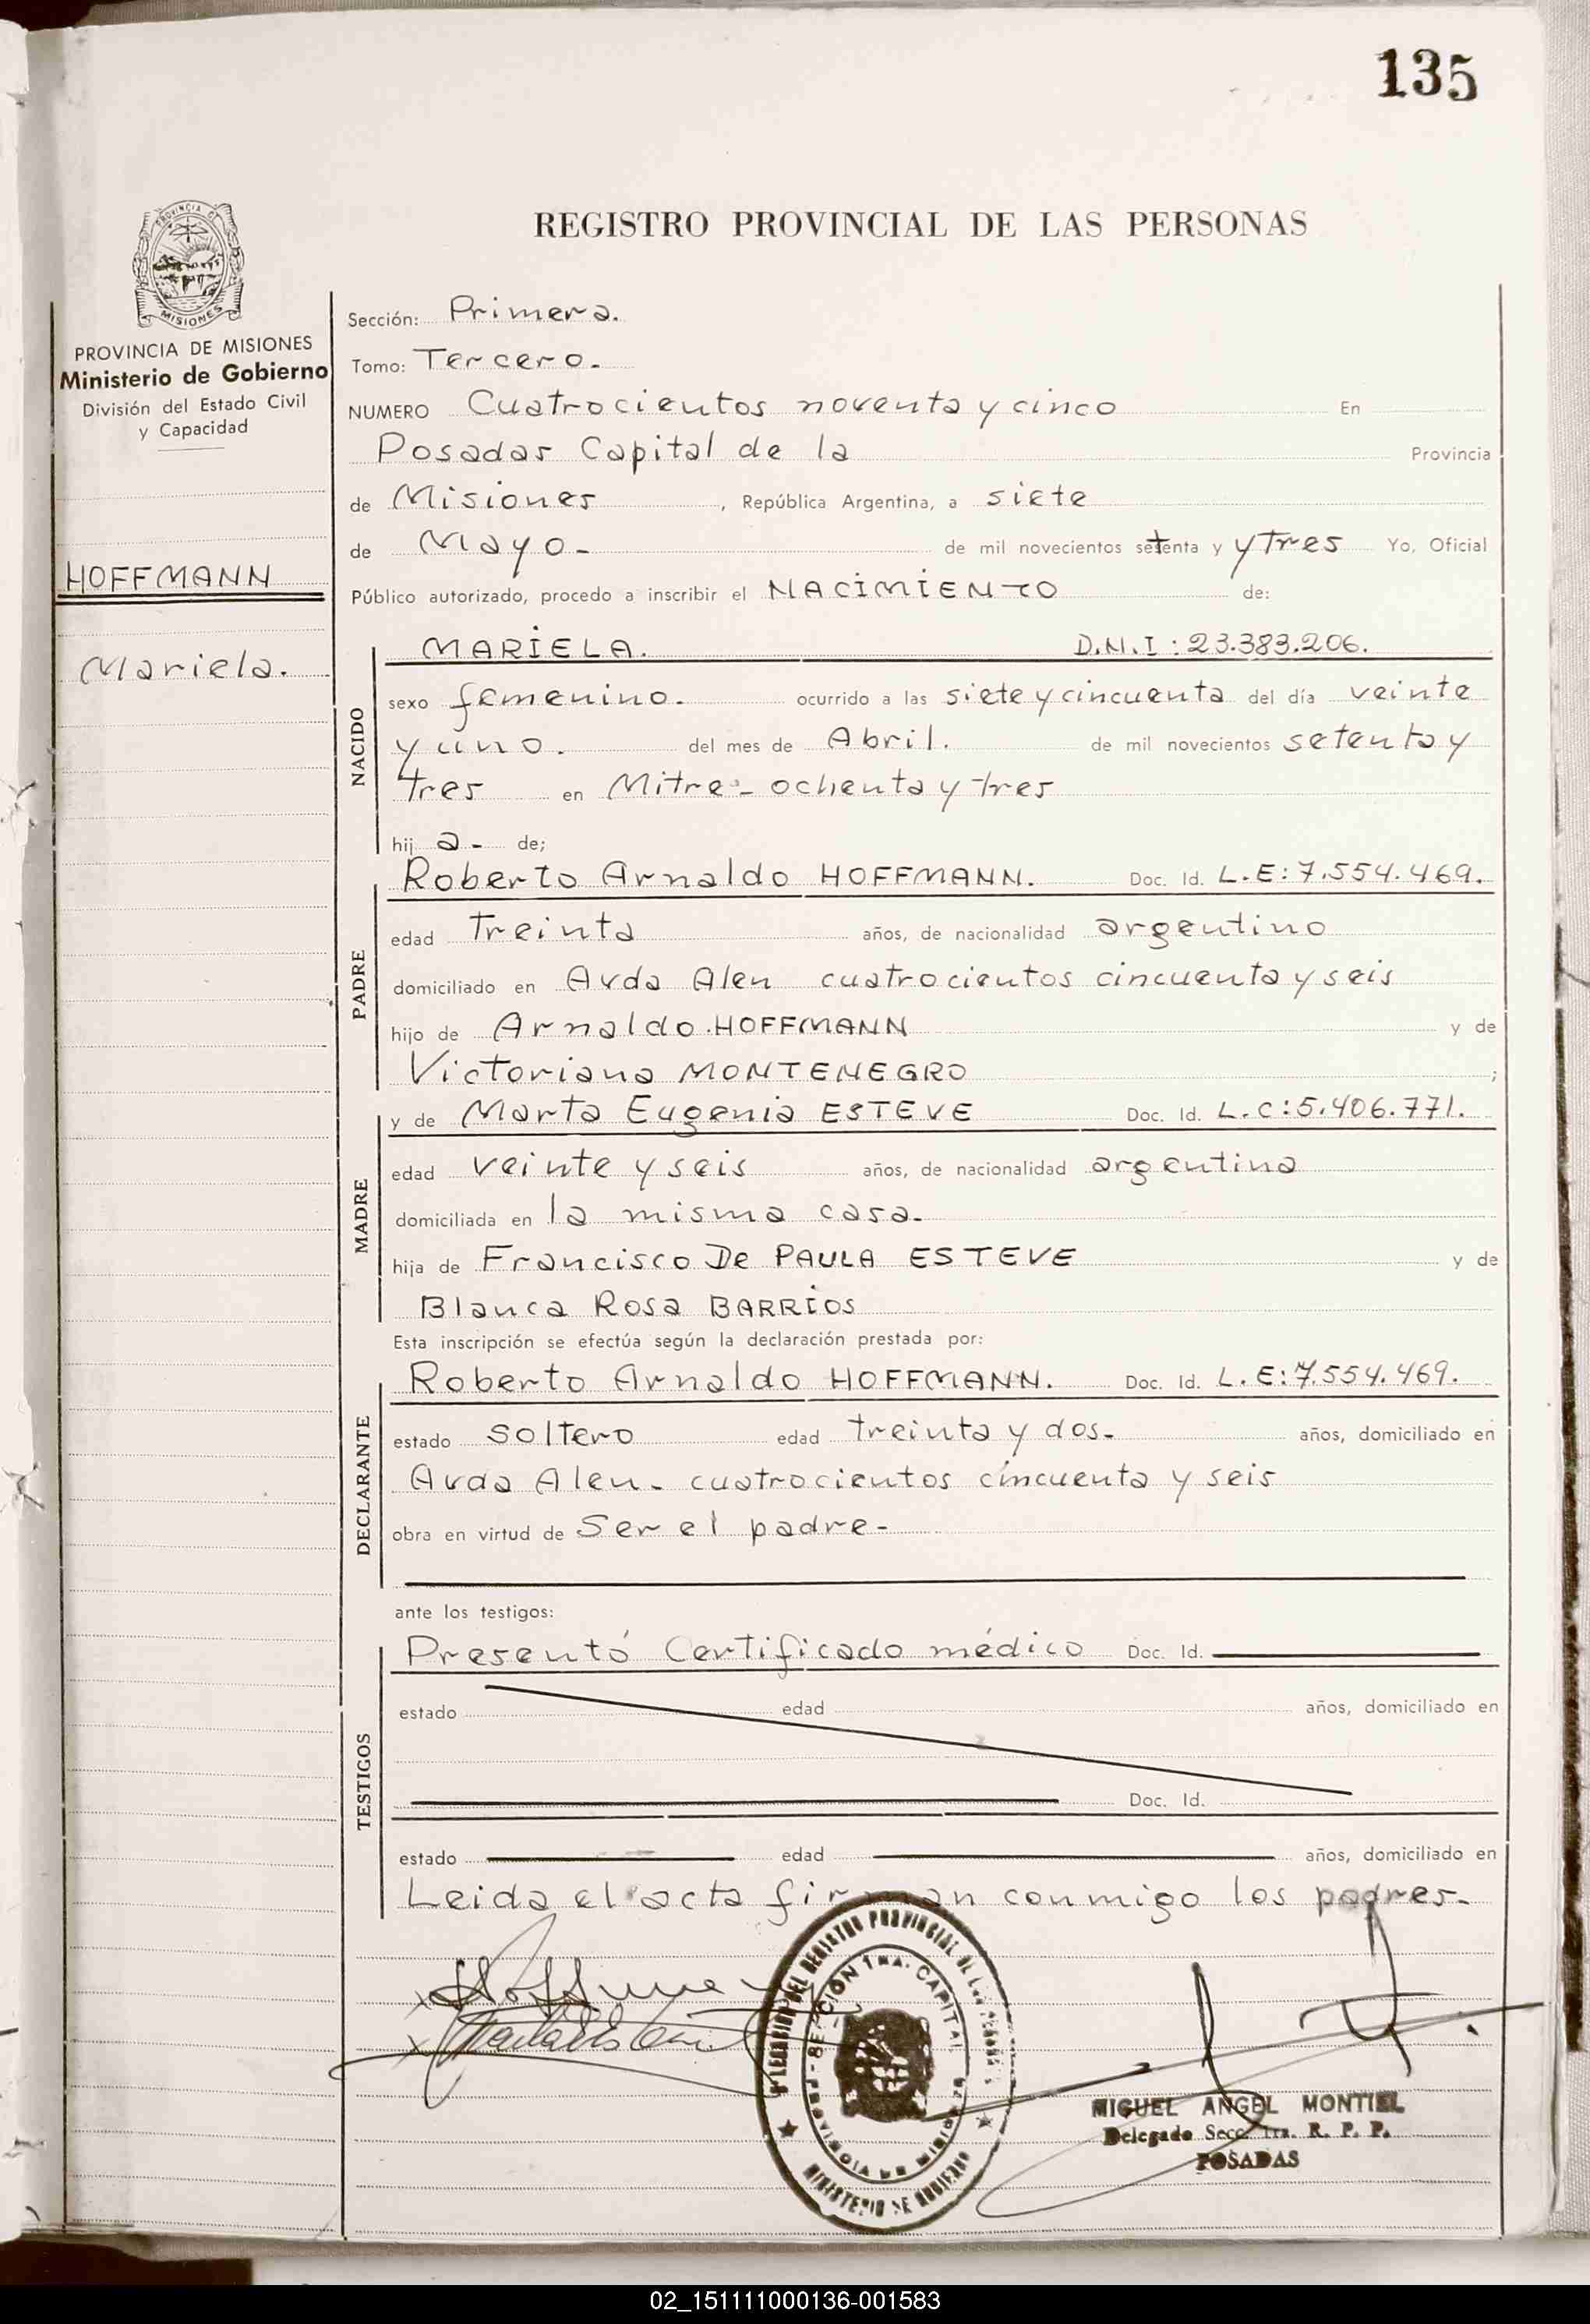 135
REGISTRO PROVINCIAL DE LAS PERSONAS
PROVINCIA DE MISIONES
MISIONES
PROVINCIA DE MISIONES
Ministerio de Gobierno
División del Estado Civil
y Capacidad
HOFFMANN
Mariela.
Sección: Primera.
Tomo: Tercero.
NUMERO Cuatrocientos noventa y cinco En
Posadas Capital de la Provincia
de Misiones, República Argentina, a siete
de Mayo- de mil novecientos setenta y y tres Yo, Oficial
Público autorizado, procedo a inscribir el NACIMIENTO de:
NACIDO
MARIELA. D.N.I: 23.383.206.
sexo femenino. ocurrido a las siete y cincuenta del día veinte
y uno. del mes de Abril. de mil novecientos setenta y
tres en Mitre- ochenta y tres
hij a- de;
PADRE
Roberto Arnaldo HOFFMANN. Doc. Id. L.E: 7.554.469.
edad Treinta años, de nacionalidad argentino
domiciliado en Avda Alen cuatrocientos cincuenta y seis
hijo de Arnaldo HOFFMANN y de
Victoriana MONTENEGRO ;
MADRE
y de Marta Eugenia ESTEVE Doc. Id. L.C: 5.406.771.
edad veinte y seis años, de nacionalidad argentina
domiciliada en la misma casa.
hija de Francisco De PAULA ESTEVE y de
Blanca Rosa BARRIOS
Esta inscripción se efectúa según la declaración prestada por:
DECLARANTE
Roberto Arnaldo HOFFMANN. Doc. Id. L.E: 7.554.469.
estado soltero edad treinta y dos- años, domiciliado en
Avda Alen- cuatrocientos cincuenta y seis
obra en virtud de Ser el padre-
ante los testigos:
TESTIGOS
Presentó Certificado médico Doc. Id.
estado edad años, domiciliado en
Doc. Id.
estado edad años, domiciliado en
Leida el acta firman conmigo los padres-
Hoffmann
DEL REGISTRO PROVINCIAL DE LAS PERSONAS
SECCION 1RA. CAPITAL
PROVINCIA DE MISIONES
MINISTERIO DE GOBIERNO
MIGUEL ANGEL MONTIEL
Delegado Secc. 1ra. R. P. P.
POSADAS
02_151111000136-001583